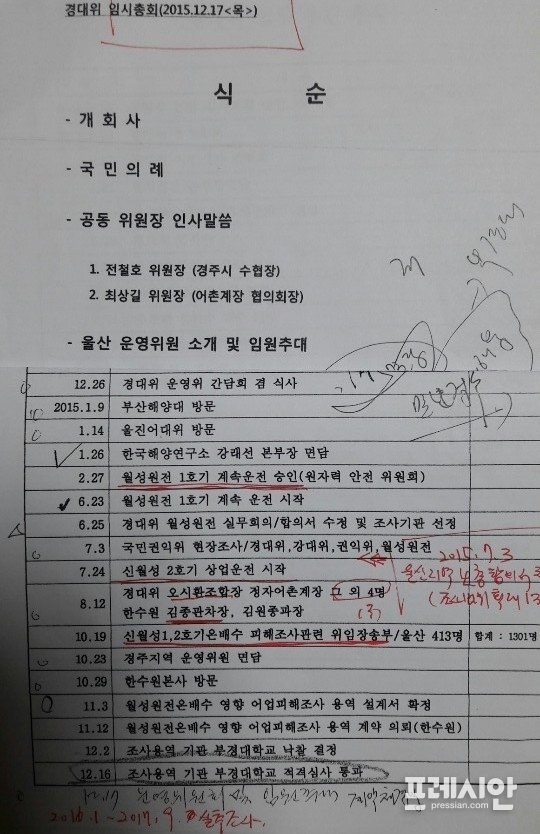 경대위 임시총회(2015.12.17<목>)
식 순
- 개 회 사
- 국 민 의 례
- 공동 위원장 인사말씀
1. 전철호 위원장 (경주시 수협장)
2. 최상길 위원장 (어촌계장 협의회장)
- 울산 운영위원 소개 및 임원추대
12.26 경대위 운영위 간담회 겸 식사
2015.1.9 부산해양대 방문
1.14 울진어대위 방문
1.26 한국해양연구소 강태선 본부장 면담
2.27 월성원전 1호기 계속운전 승인(원자력 안전 위원회)
6.23 월성원전 1호기 계속 운전 시작
6.25 경대위 월성원전 실무회의/합의서 수정 및 조사기관 선정
7.3 국민권익위 현장조사/경대위,강대위,권익위,월성원전
2015.7.3
7.24 신월성 2호기 상업운전 시작
8.12 경대위 오시환조합장 정자어촌계장 그 외 4명
한수원 김종판차장, 김원종과장
(3)
10.19 신월성1,2호기온배수 피해조사관련 위임장송부/울산 413명 합계 : 1301명
10.23 경주지역 운영위원 면담
10.29 한수원본사 방문
11.3 월성원전온배수 영향 어업피해조사 용역 설계서 확정
11.12 월성원전온배수 영향 어업피해조사 용역 계약 의뢰(한수원)
12.2 조사용역 기관 부경대학교 낙찰 결정
12.16 조사용역 기관 부경대학교 적격심사 통과
12.17
2016.1 - 2017.9
프레시안
pressian.com